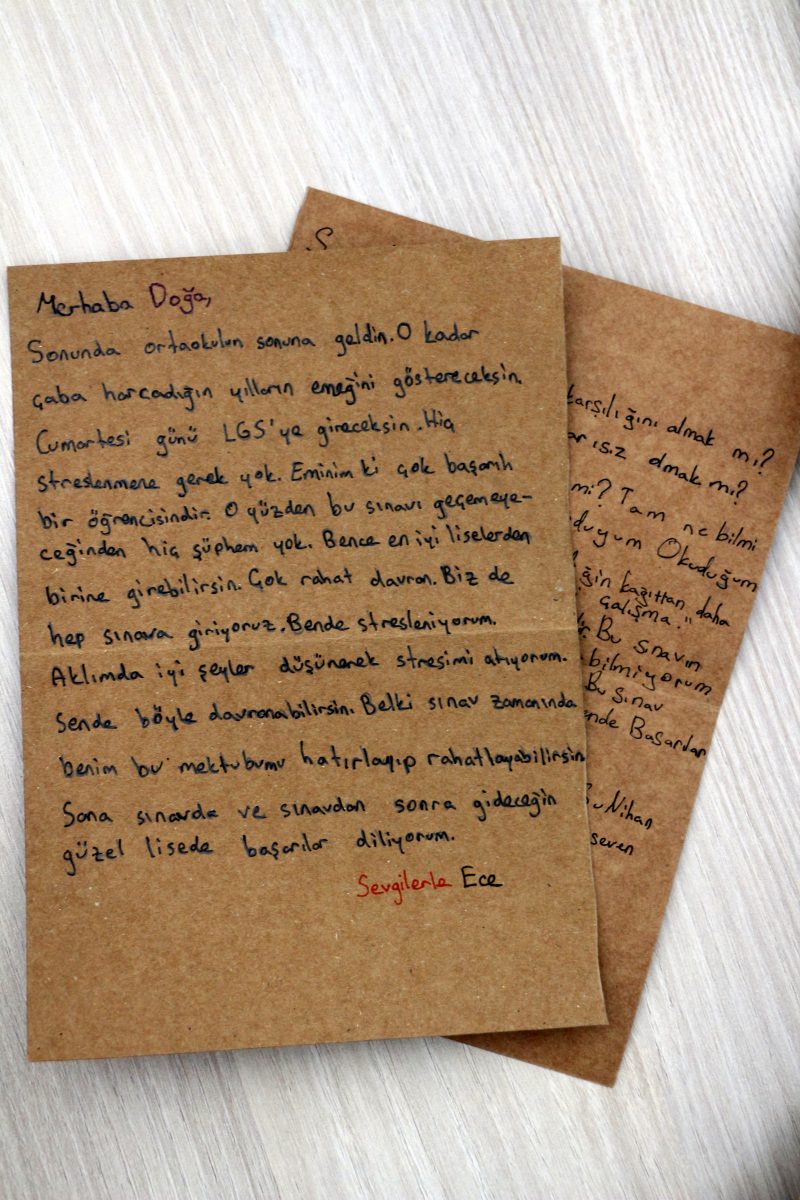 Merhaba Doğa,
Sonunda ortaokulun sonuna geldin. O kadar
çaba harcadığın yılların emeğini göstereceksin.
Cumartesi günü LGS'ye gireceksin. Hiç
streslenmene gerek yok. Eminim ki çok başarılı
bir öğrencisindir. O yüzden bu sınavı geçemeye-
ceğinden hiç şüphem yok. Bence en iyi liselerden
birine girebilirsin. Çok rahat davran. Biz de
hep sınava giriyoruz. Bende stresleniyorum.
Aklımda iyi şeyler düşünerek stresimi atıyorum.
Sende böyle davranabilirsin. Belki sınav zamanında
benim bu mektubumu hatırlayıp rahatlayabilirsin
Sana sınavda ve sınavdan sonra gideceğin
güzel lisede başarılar diliyorum.
Sevgilerle Ece
S
karşılığını almak mı?
arısız olmak mı?
mi? Tam ne bilmi
duğum Okuduğum
ğin kağıttan daha
çalışma."
Bu sınavın
bilmiyorum
Bu sınav
ende Başarılar
Nihan
seven